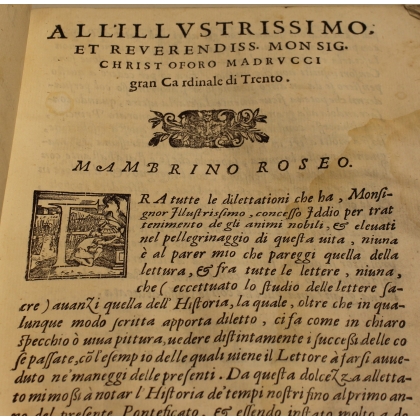 ALL'ILLVSTRISSIMO.
ET REVERENDISS. MONSIG.
CHRISTOFORO MADRVCCI
gran Cardinale di Trento.
MAMBRINO ROSEO.
TRA tutte le dilettationi che ha, Monsi-
gnor Illustrissimo, concesso Iddio per trat
tenimento de gli animi nobili, & eleuati
nel pellegrinaggio di questa uita, niuna
è al parer mio che pareggi quella della
lettura, & fra tutte le lettere, niuna,
che (eccettuato lo studio delle lettere sa-
cre) auanzi quella dell'Historia, la quale, oltre che in qua-
lunque modo scritta apporta diletto, ci fa come in chiaro
specchio ò uiua pittura, uedere distintamente i successi delle co
se passate, cō l'esempio delle quali uiene il Lettore à farsi auue-
duto ne'maneggi delle presenti. Da questa dolcezza alletta-
to mi mossi à notar l'Historia de'tempi nostri fino al primo an-
no del presente Ponteficato, & essendo instato molto a